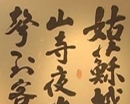 姑蘇城
山寺夜
聲到客